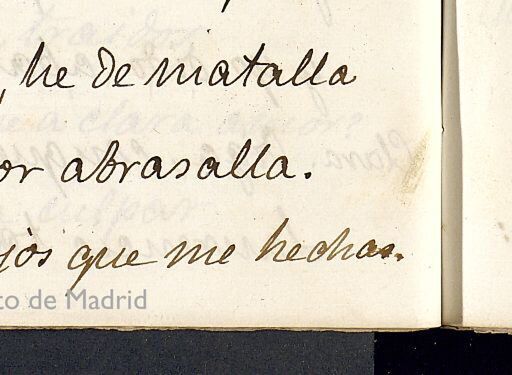 , he de matalla
or abrasalla.
jos que me hechas.
to de Madrid